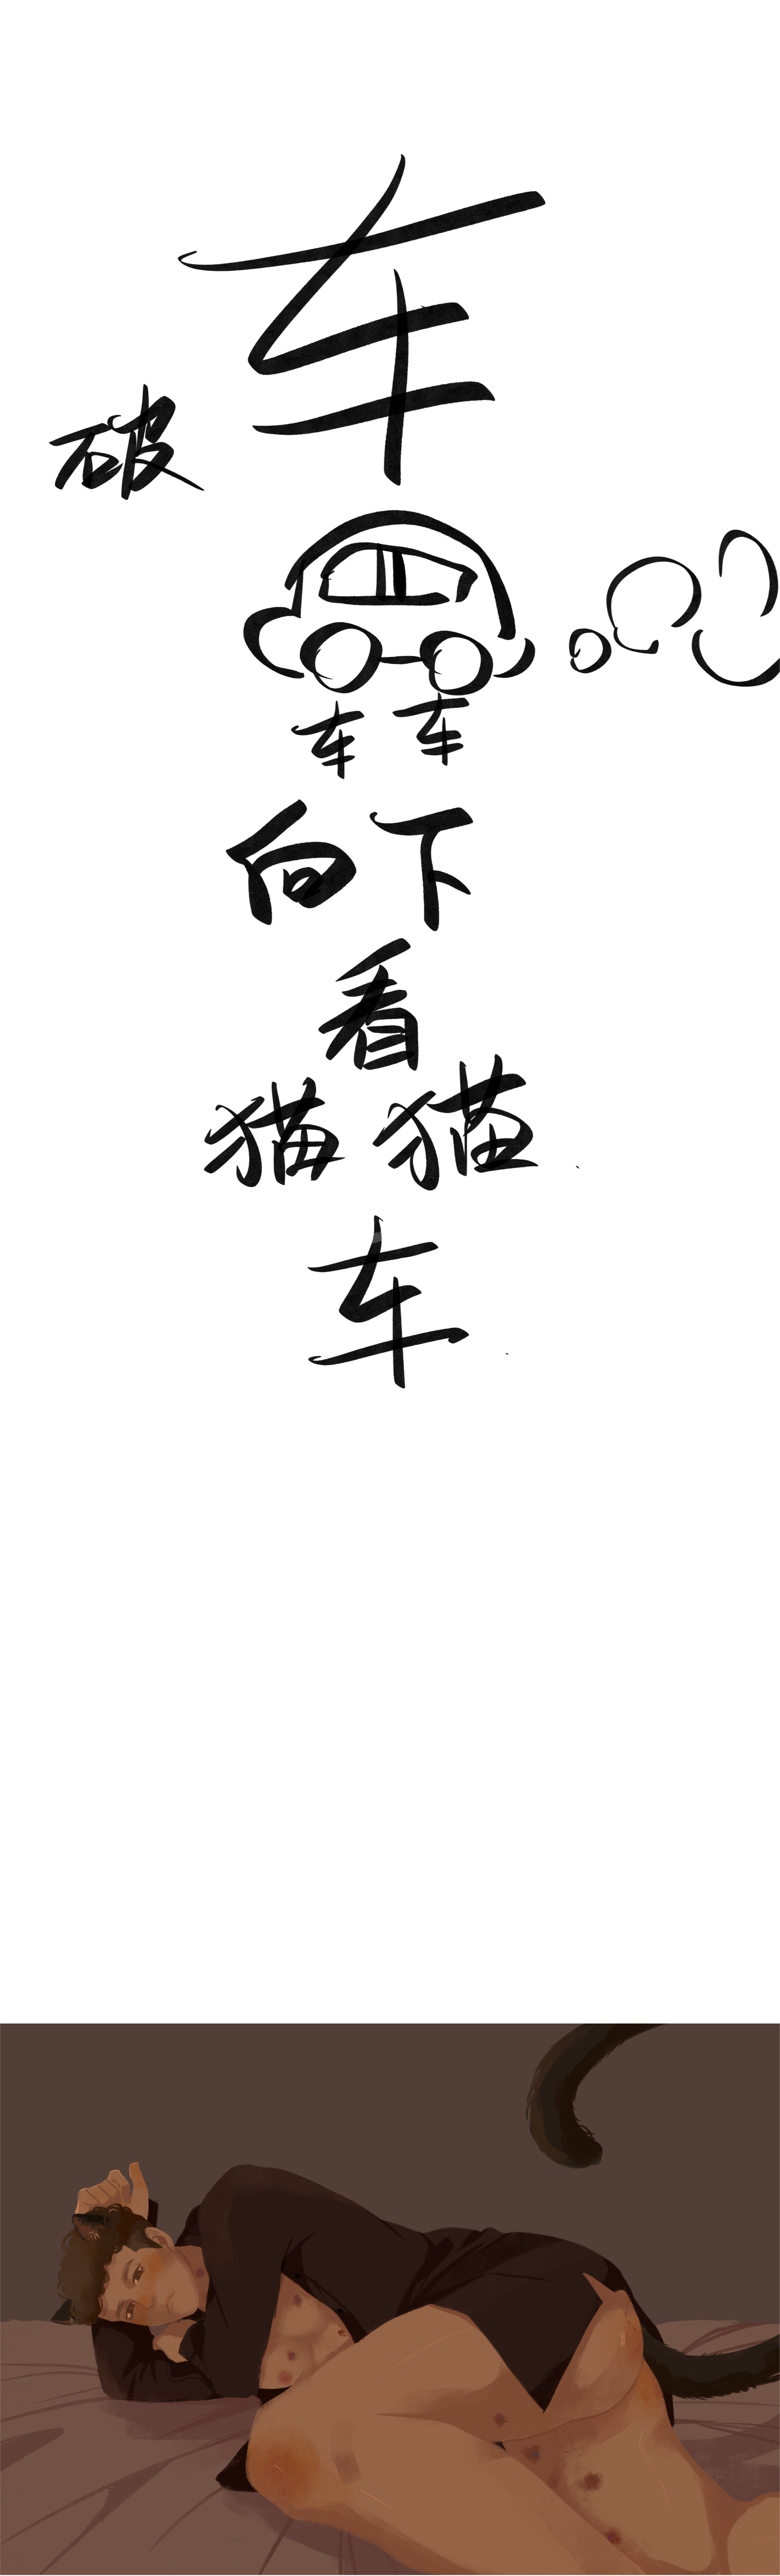 车
破
车车
向下
看
猫猫
车